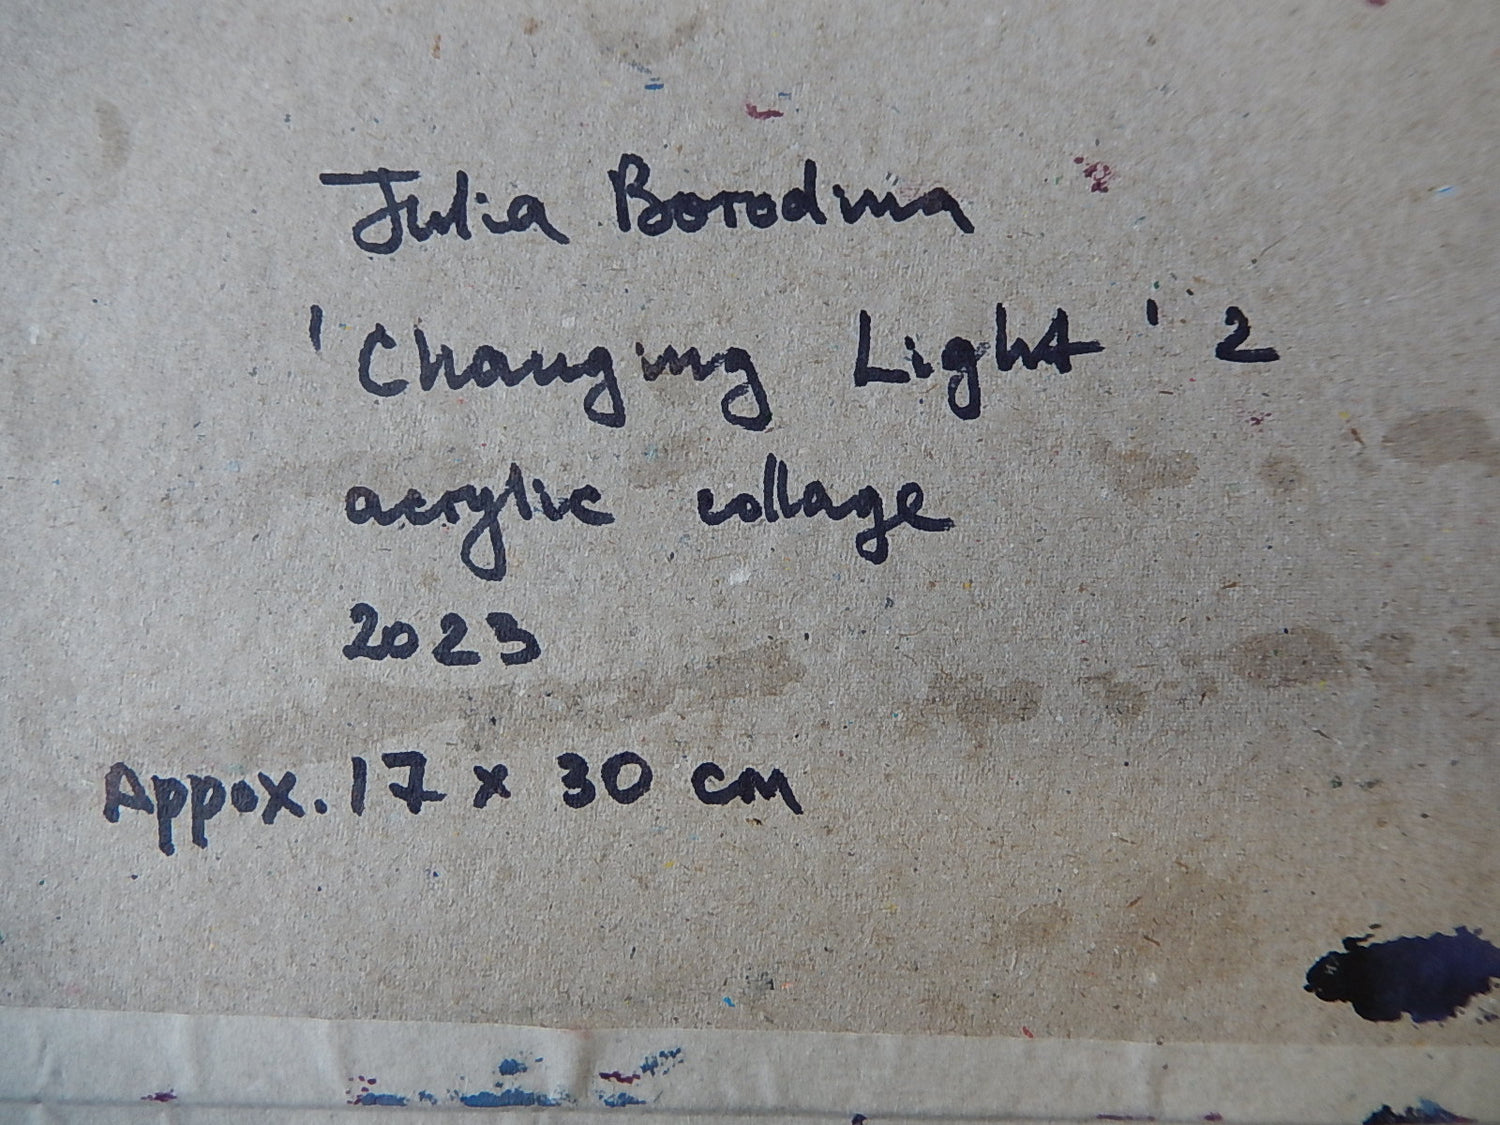 Julia Borodina
'Changing Light' 2
acrylic collage
2023
Appox. 17 x 30 cm